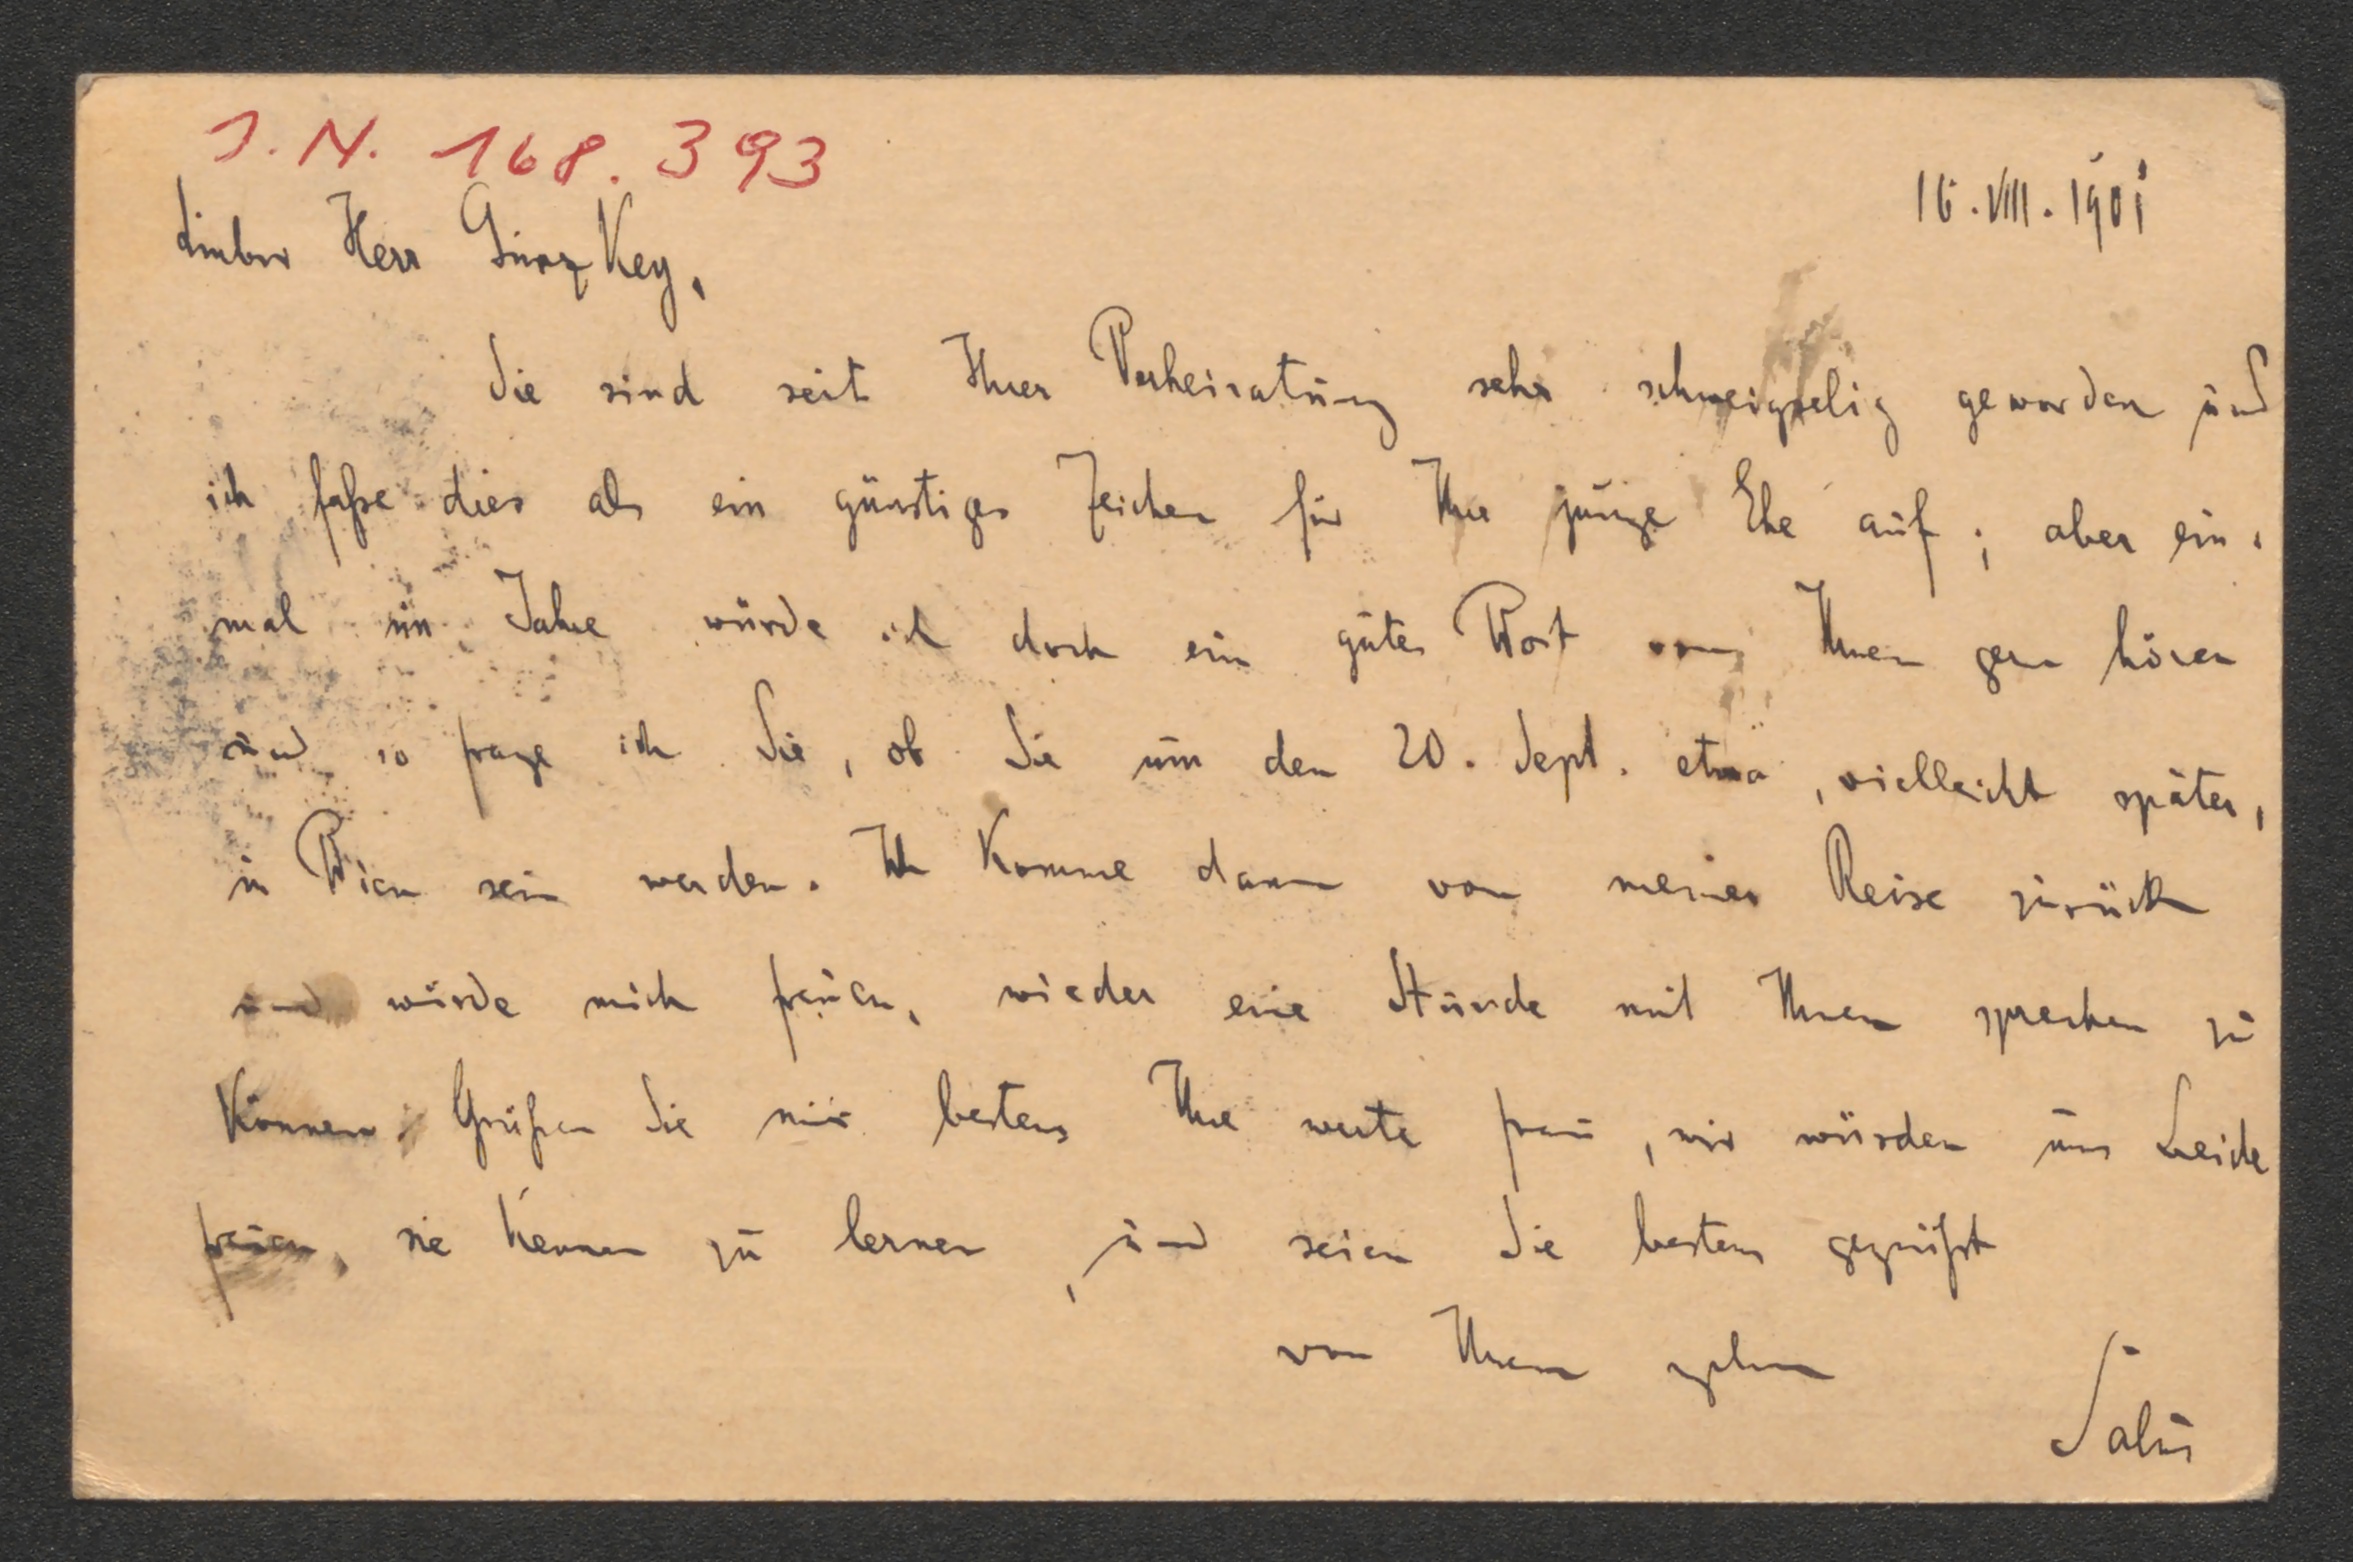 I. N. 168.393
16. VIII. 1901
Lieber Herr Ginzkey,
Sie sind seit Ihrer Verheiratung sehr schweigselig geworden und
ich faße dies als ein günstiges Zeichen für Ihre junge Ehe auf; aber ein-
mal im Jahre würde ich doch ein gutes Wort von Ihnen gern hören
und so frage ich Sie, ob Sie um den 20. Sept. etwa, vielleicht später,
in Wien sein werden. Ich komme dann von meiner Reise zurück
und würde mich freuen, wieder eine Stunde mit Ihnen sprechen zu
können. Grüßen Sie mir bestens Ihre werte Frau, wir würden uns beide
freuen, sie kennen zu lernen, und seien Sie bestens gegrüßt
von Ihrem
Salus